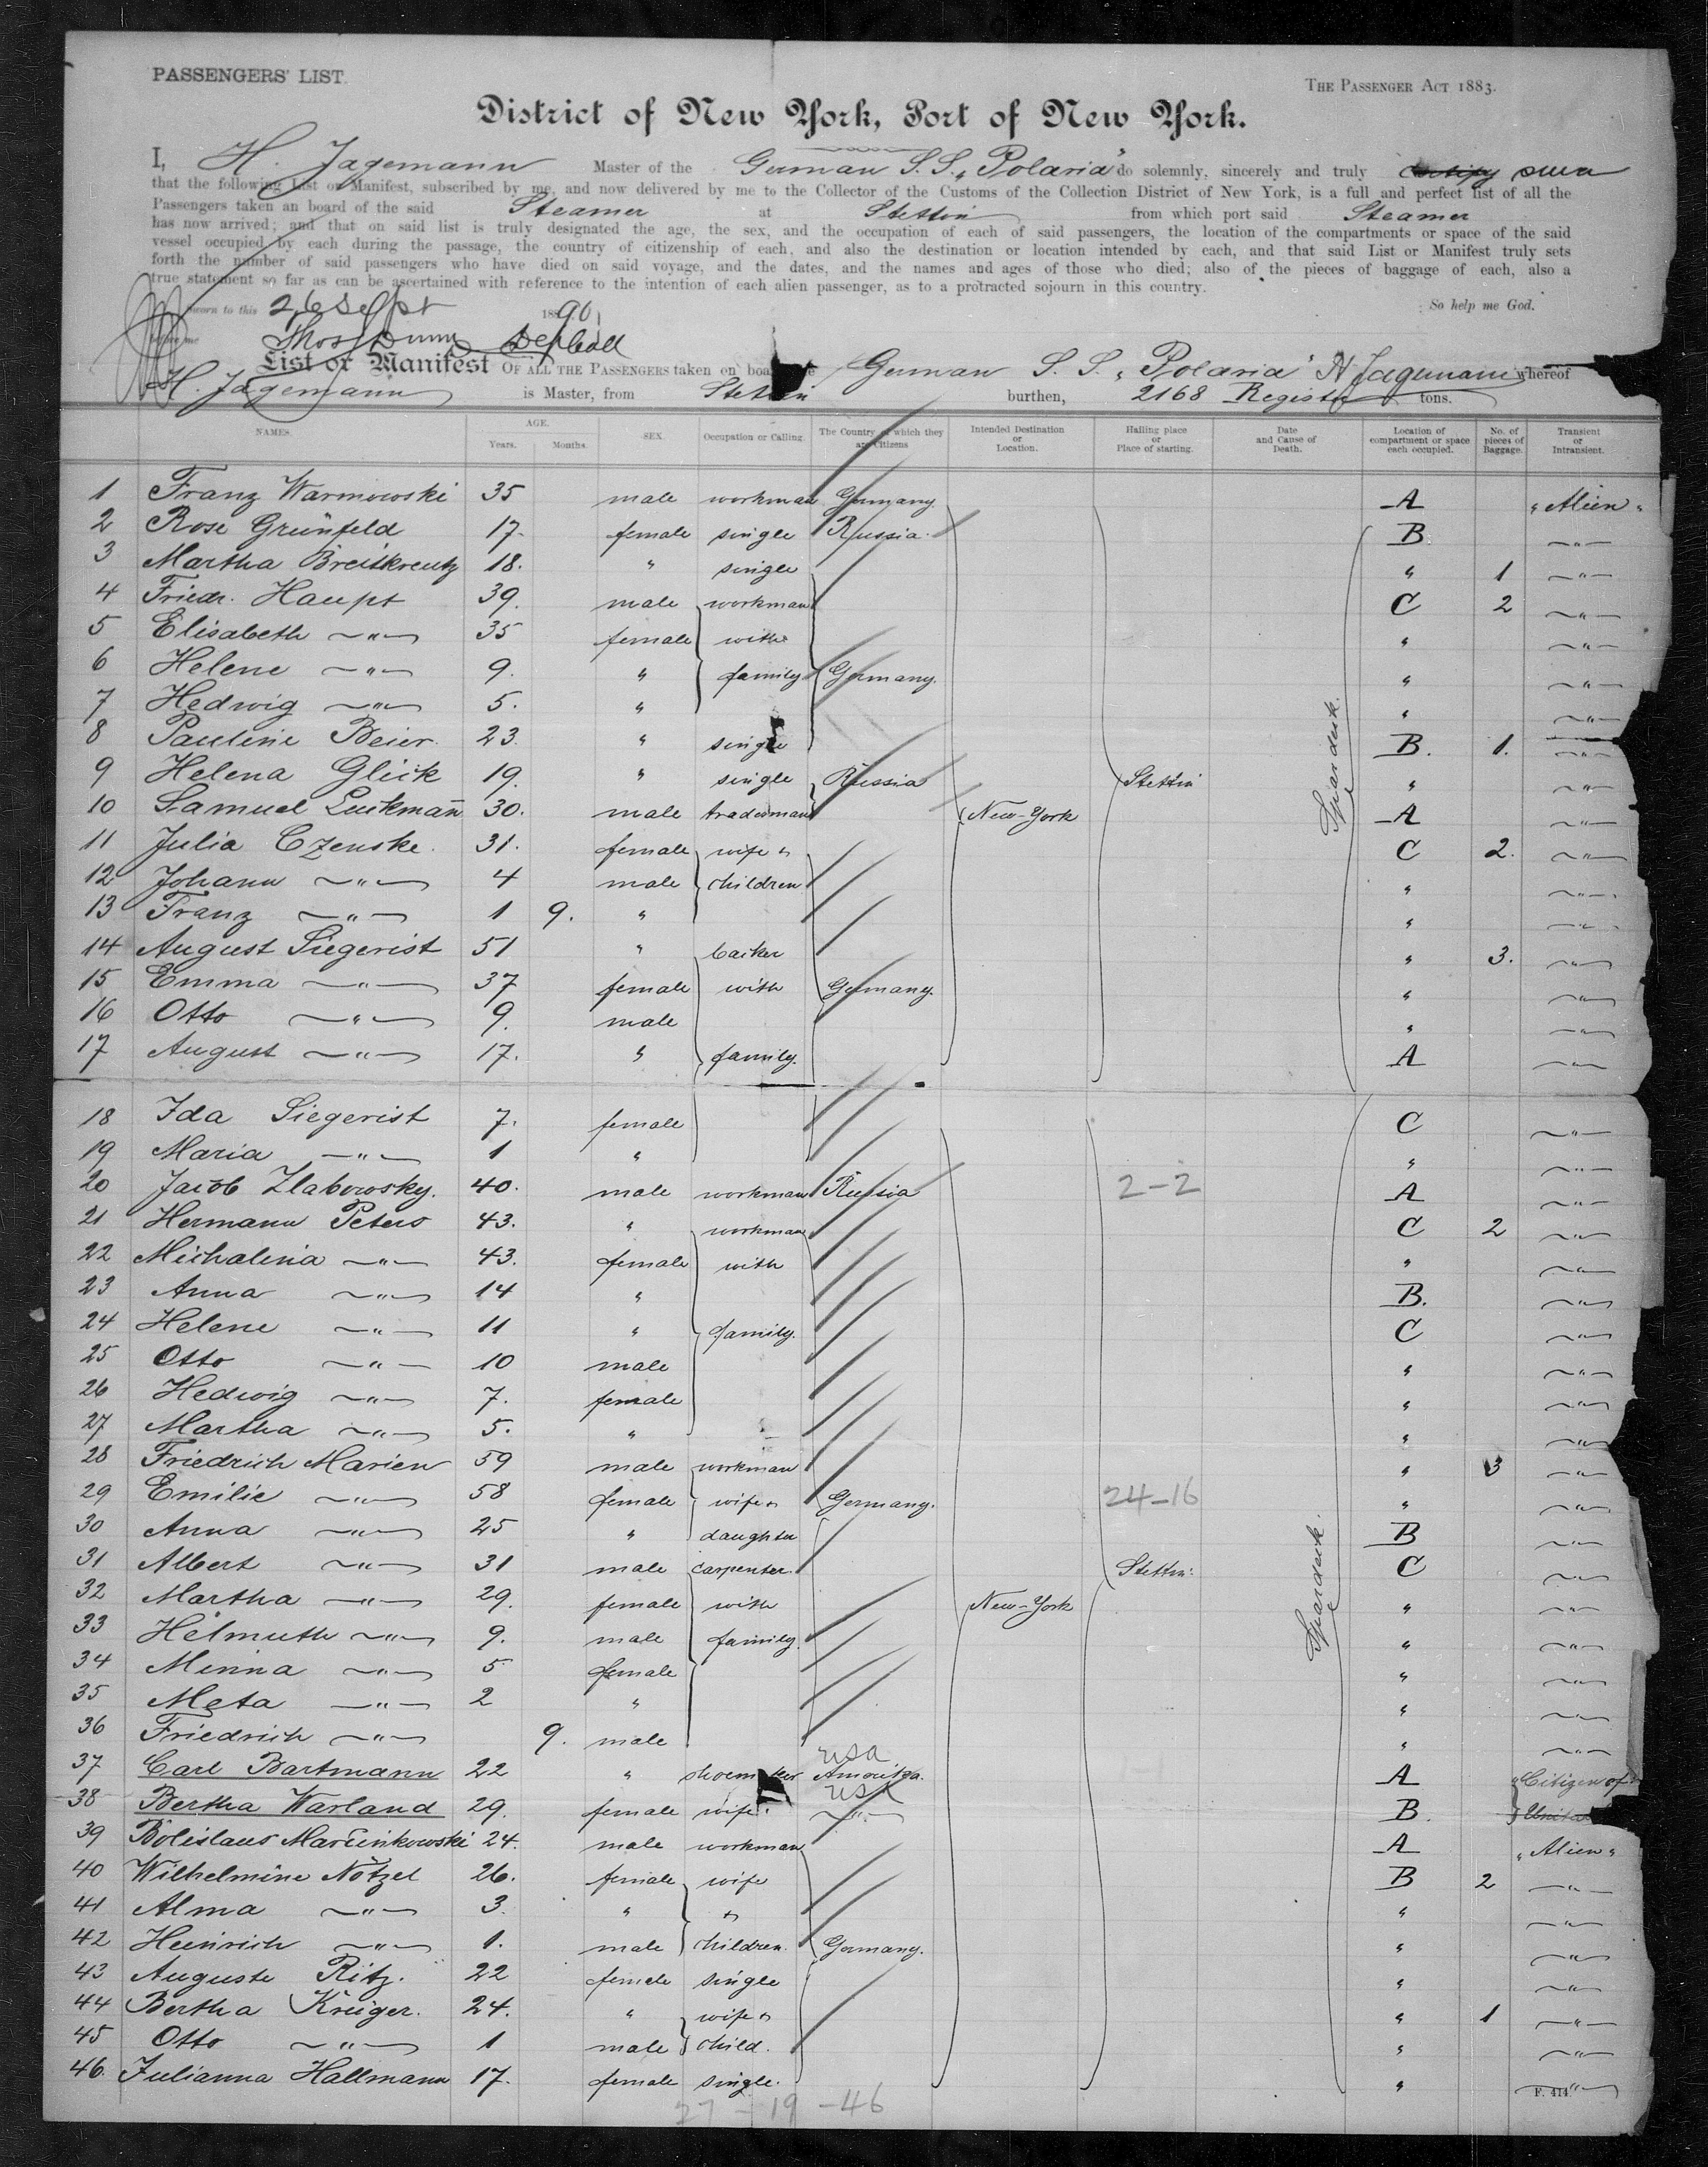 PASSENGERS' LIST.
THE PASSENGER ACT 1883.
District of New York, Port of New York.
I, H. Jagemann Master of the German S. S. „Polaria" do solemnly, sincerely and truly certify swear
that the following List or Manifest, subscribed by me, and now delivered by me to the Collector of the Customs of the Collection District of New York, is a full and perfect list of all the
Passengers taken an board of the said Steamer at Stettin from which port said Steamer
has now arrived; and that on said list is truly designated the age, the sex, and the occupation of each of said passengers, the location of the compartments or space of the said
vessel occupied by each during the passage, the country of citizenship of each, and also the destination or location intended by each, and that said List or Manifest truly sets
forth the number of said passengers who have died on said voyage, and the dates, and the names and ages of those who died; also of the pieces of baggage of each, also a
true statement so far as can be ascertained with reference to the intention of each alien passenger, as to a protracted sojourn in this country.
Sworn to this 26 Sept 1890 So help me God.
Thos Dunn Dep Coll
List or Manifest OF ALL THE PASSENGERS taken on board German S. S. „Polaria" H Jagemann whereof
H. Jagemann is Master, from Stettin burthen, 2168 Register tons.
NAMES. AGE. Years. Months. SEX. Occupation or Calling. The Country of which they are Citizens Intended Destination or Location. Hailing place or Place of starting. Date and Cause of Death. Location of compartment or space each occupied. No. of pieces of Baggage. Transient or Intransient.
1 Franz Warmowski 35 male workman Germany A „Alien"
2 Rose Grünfeld 17. female single Russia. B. 〃
3 Martha Breitkreutz 18. 〃 single 〃 1 〃
4 Friedr. Haupt 39. male workman C 2 〃
5 Elisabeth 〃 35 female with 〃 〃
6 Helene 〃 9. 〃 family Germany. 〃 〃
7 Hedwig 〃 5. 〃 〃 〃
8 Pauline Beier. 23. 〃 single B. 1. 〃
9 Helena Glick 19. 〃 single Russia Stettin 〃 〃
10 Samuel Luckmann 30. male tradesman New-York A 〃
11 Julia Czenske. 31. female wife & C 2. 〃
12 Johann 〃 4 male children 〃 〃
13 Franz 〃 1 9. 〃 〃 〃
14 August Siegerist 51 〃 backer 〃 3. 〃
15 Emma 〃 37 female with Germany. 〃 〃
16 Otto 〃 9. male 〃 〃
17 August 〃 17. 〃 family. A 〃
18 Ida Siegerist 7. female C 〃
19 Maria 〃 1 〃 〃 〃
20 Jacob Zlabowsky. 40. male workman Russia 2-2 A 〃
21 Hermann Peters 43. 〃 workman C 2 〃
22 Michalina 〃 43. female with 〃 〃
23 Anna 〃 14 〃 B. 〃
24 Helene 〃 11 〃 family. C 〃
25 Otto 〃 10 male 〃 〃
26 Hedwig 〃 7. female 〃 〃
27 Martha 〃 5. 〃 〃 〃
28 Friedrich Marien 59 male workman 〃 3 〃
29 Emilie 〃 58 female wife & Germany. 24-16 〃 〃
30 Anna 〃 25 〃 daughter B 〃
31 Albert 〃 31 male carpenter. Stettin. C 〃
32 Martha 〃 29. female with New-York 〃 〃
33 Helmuth 〃 9. male family. 〃 〃
34 Minna 〃 5 female 〃 〃
35 Meta 〃 2 〃 〃 〃
36 Friedrich 〃 9. male 〃 〃
usa
37 Carl Bartmann 22 〃 shoemaker Amerika. A „Citizen of
usa
38 Bertha Warland 29. female wife. 〃 B. United
39 Bolislaus Marcinkowski 24. male workman A „Alien"
40 Wilhelmine Nötzel 26. female wife B 2 〃
41 Alma 〃 3. 〃 & 〃 〃
42 Heinrich 〃 1. male children. Germany. 〃 〃
43 Auguste Ritz. 22 female single 〃 〃
44 Bertha Krüger. 24. 〃 wife & 〃 1 〃
45 Otto 〃 1 male child. 〃 〃
46. Julianna Hallmann 17. female single. 〃 〃
F. 414.
27-19-46